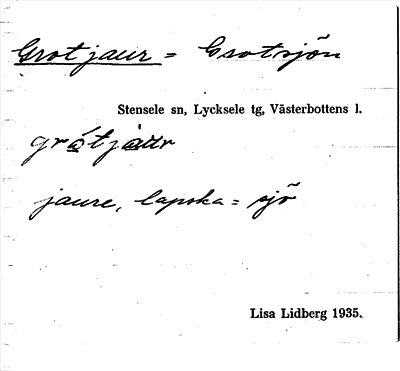 Grotjaur = Grotsjön
Stensele sn, Lycksele tg, Västerbottens l.
grótjaur
jaure, lapska = sjö
Lisa Lidberg 1935.